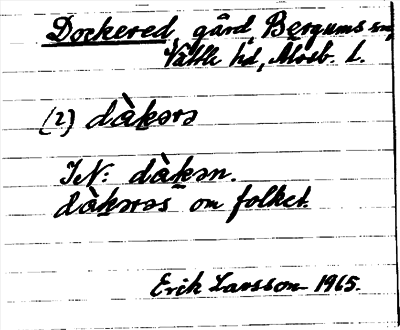 Dockered, gård, Bergums sn,
Vättle hd, Älvsb. l.
(2) dàkərə
IN: dàkən.
dàkərəs om folket.
Erik Larsson 1965.